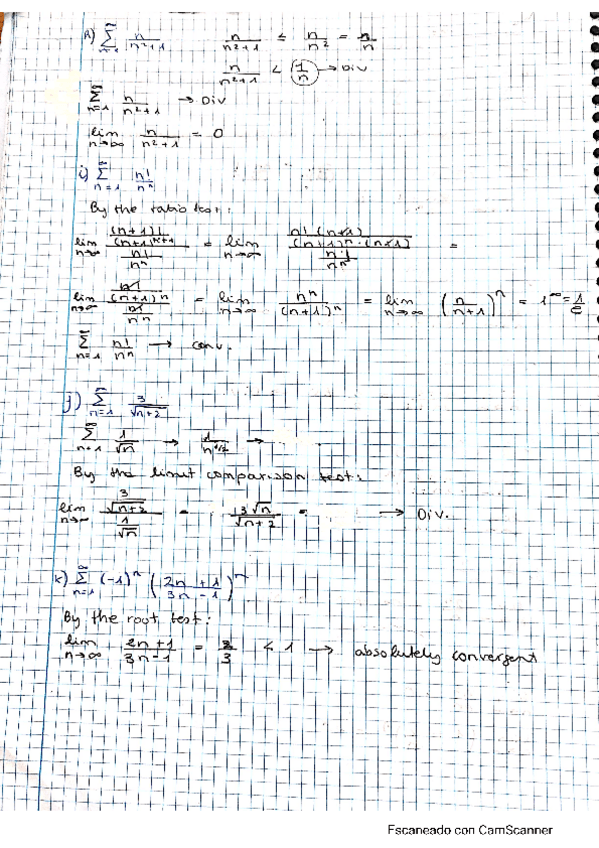 h) ∑_{n=1}^{∞} n/(n²+1)   n/(n²+1) ≤ n/n² = n/n
n/(n²+1) < (1/n) → Div
∑_{n=1}^{∞} n/(n²+1) → Div
lim_{n→∞} n/(n²+1) = 0
i) ∑_{n=1}^{∞} n!/nⁿ
By the ratio test:
lim_{n→∞} ((n+1)!/(n+1)^{n+1})/(n!/nⁿ) = lim_{n→∞} (n!(n+1)/((n+1)ⁿ·(n+1)))/(n!/nⁿ) =
lim_{n→∞} (n!/(n+1)ⁿ)/(n!/nⁿ) = lim_{n→∞} nⁿ/(n+1)ⁿ = lim_{n→∞} (n/(n+1))ⁿ = 1^∞ = 1/e
∑_{n=1}^{∞} n!/nⁿ → conv.
j) ∑_{n=1}^{∞} 3/√(n+2)
∑_{n=1}^{∞} 1/√n → 1/n^{1/2} →
By the limit comparison test:
lim_{n→∞} (3/√(n+2))/(1/√n) = 3√n/√(n+2) = → Div.
k) ∑_{n=1}^{∞} (-1)ⁿ ((2n+1)/(3n-1))ⁿ
By the root test:
lim_{n→∞} (2n+1)/(3n-1) = 2/3 < 1 → absolutely convergent
Escaneado con CamScanner